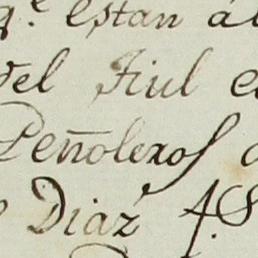 q.e estan al
del Fiul e
Peñoleros
Diaz 4.S